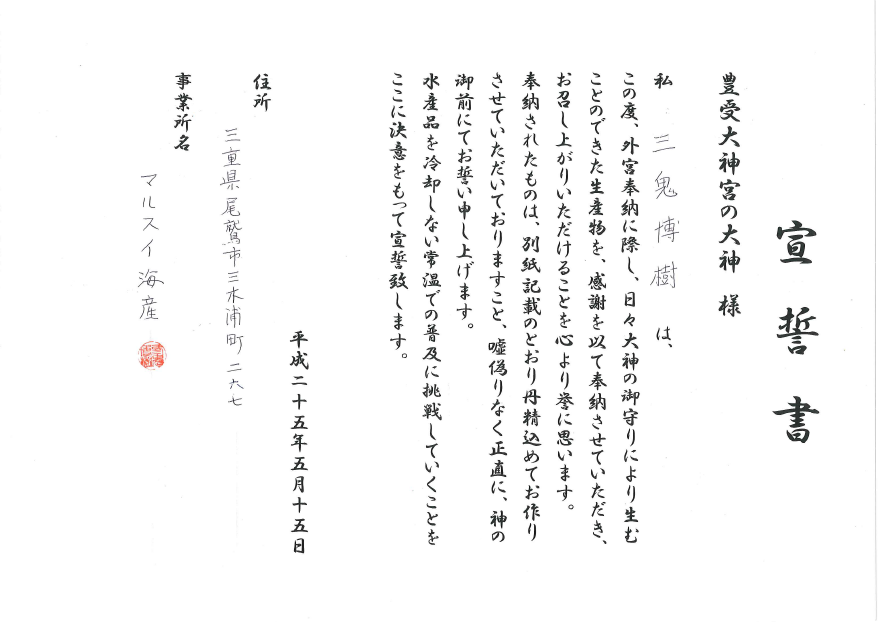 宣誓書
豊受大神宮の大神 様
私 三鬼博樹 は、
この度、外宮奉納に際し、日々大神の御守りにより生む
ことのできた生産物を、感謝を以て奉納させていただき、
お召し上がりいただけることを心より誉に思います。
奉納されたものは、別紙記載のとおり丹精込めてお作り
させていただいておりますこと、嘘偽りなく正直に、神の
御前にてお誓い申し上げます。
水産品を冷却しない常温での普及に挑戦していくことを
ここに決意をもって宣誓致します。
平成二十五年五月十五日
住所
三重県尾鷲市三木浦町二六七
事業所名
マルスイ海産